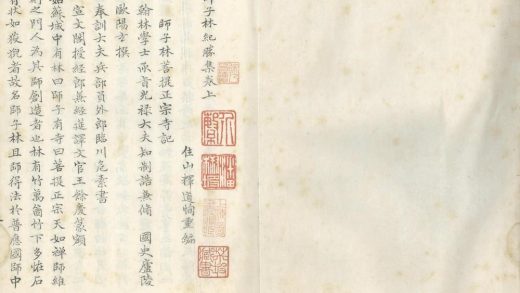 師子林紀勝集卷上
住山釋道恂重編
師子林菩提正宗寺記
翰林學士承旨光祿大夫知制誥兼脩　國史廬陵
歐陽玄撰
奉訓大夫兵部員外郎臨川危素書
宣文閣授經郎兼經筵譯文官王餘慶篆額
姑蘇城中有林曰師子有寺曰菩提正宗天如禪師維
則之門人為其師創造者也林有竹萬箇竹下多怪石
有狀如狻猊者故名師子林且師得法於普應國師中